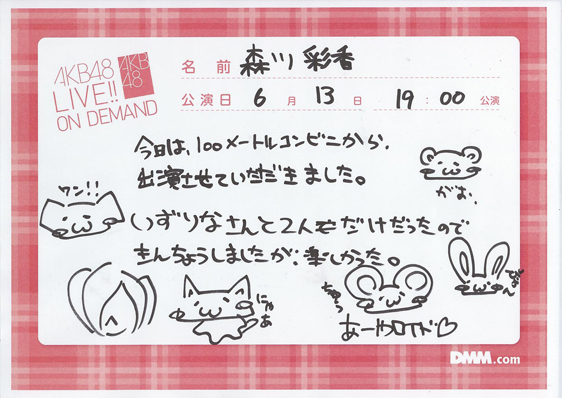 AKB48
LIVE!!
ON DEMAND
AKB
48
名 前 森川 彩香
公演日 6 月 13 日 19:00 公演
今日は、100メートルコンビニから、
出演させていただきました。
ワン!!
がお、
いずりなさんと2人だけだったので
きんちょうしましたが、楽しかった。
にゃあ
ちゅう
あーやロイド♡
DMM.com